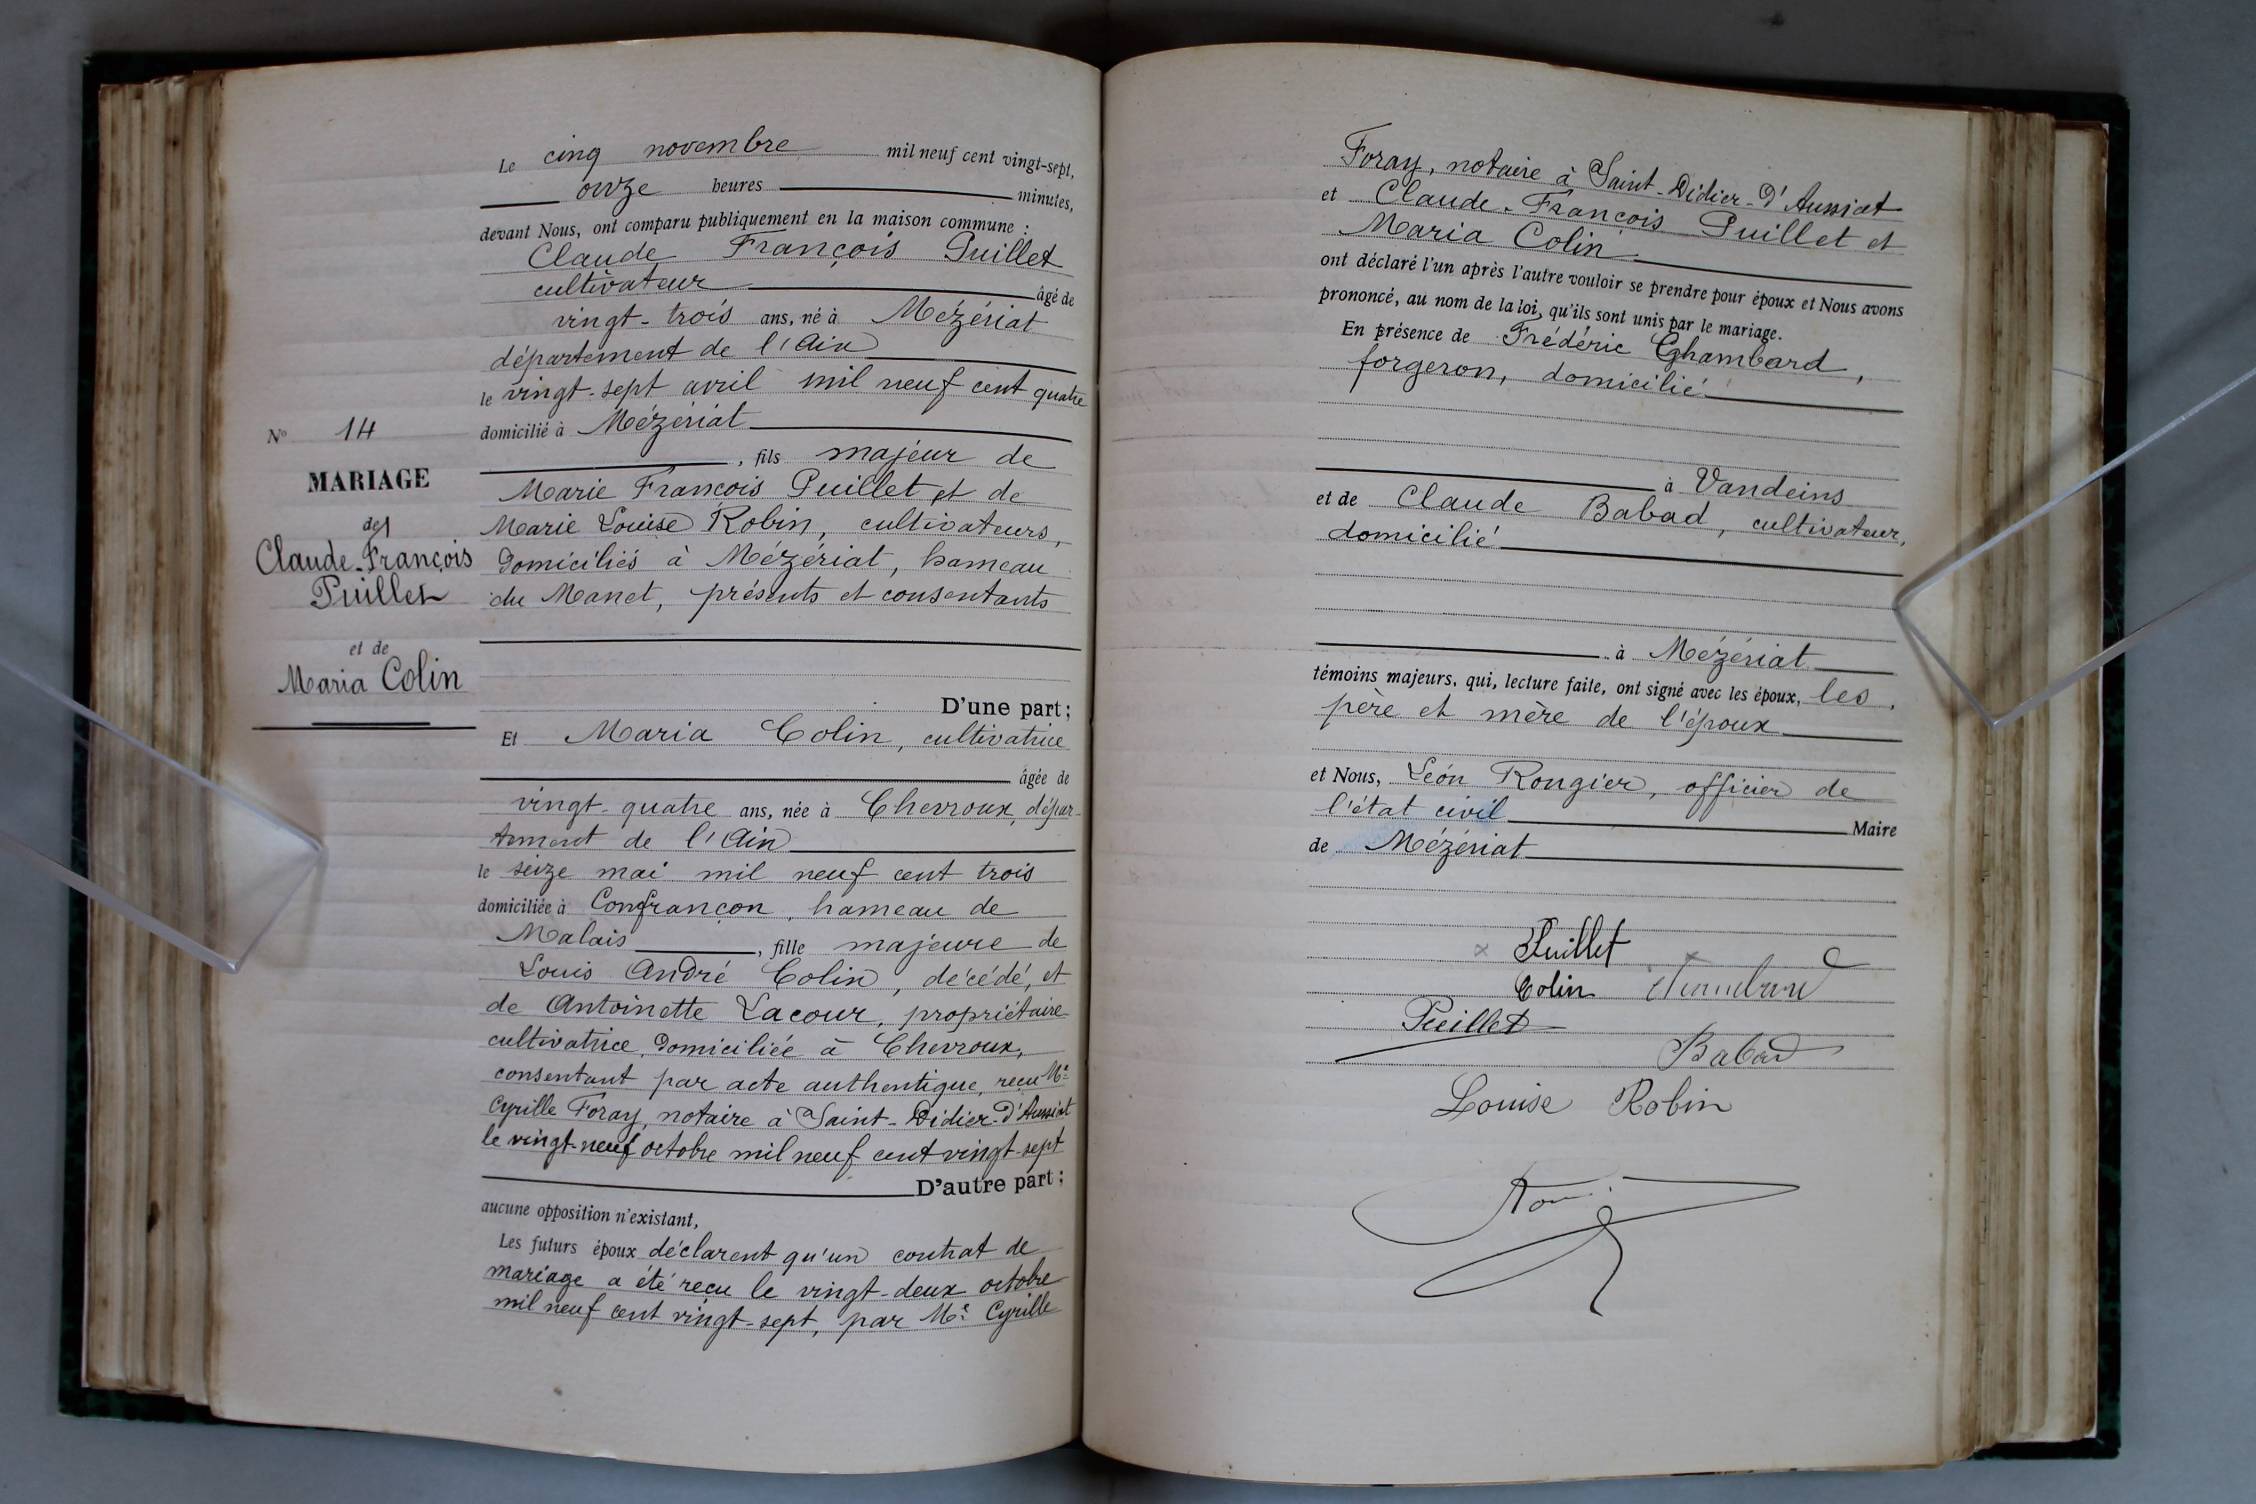 N° 14
MARIAGE
de
Claude-François
Puillet
et de
Maria Colin
Le cinq novembre mil neuf cent vingt-sept,
onze heures minutes,
devant Nous, ont comparu publiquement en la maison commune :
Claude François Puillet
cultivateur âgé de
vingt-trois ans, né à Mézériat
département de l'Ain
le vingt-sept avril mil neuf cent quatre
domicilié à Mézériat
, fils majeur de
Marie François Puillet et de
Marie Louise Robin, cultivateurs,
domiciliés à Mézériat, hameau
du Manet, présents et consentants
D'une part ;
Et Maria Colin, cultivatrice
âgée de
vingt-quatre ans, née à Chevroux, dépar-
tement de l'Ain
le seize mai mil neuf cent trois
domiciliée à Confrançon, hameau de
Malais, fille majeure de
Louis André Colin, décédé, et
de Antoinette Lacour, propriétaire
cultivatrice, domiciliée à Chevroux,
consentant par acte authentique, reçu Me
Cyrille Foray, notaire à Saint-Didier-d'Aussiat
le vingt-neuf octobre mil neuf cent vingt-sept
D'autre part ;
aucune opposition n'existant,
Les futurs époux déclarent qu'un contrat de
mariage a été reçu le vingt-deux octobre
mil neuf cent vingt-sept, par Me Cyrille
Foray, notaire à Saint-Didier-d'Aussiat
et Claude-François Puillet et
Maria Colin
ont déclaré l'un après l'autre vouloir se prendre pour époux et Nous avons
prononcé, au nom de la loi, qu'ils sont unis par le mariage.
En présence de Frédéric Chambard,
forgeron, domicilié
à Vandeins
et de Claude Babad, cultivateur,
domicilié
à Mézériat
témoins majeurs, qui, lecture faite, ont signé avec les époux, les
père et mère de l'époux
et Nous, Léon Rongier, officier de
l'état civil Maire
de Mézériat
Puillet
Colin
Puillet
Babad
Louise Robin